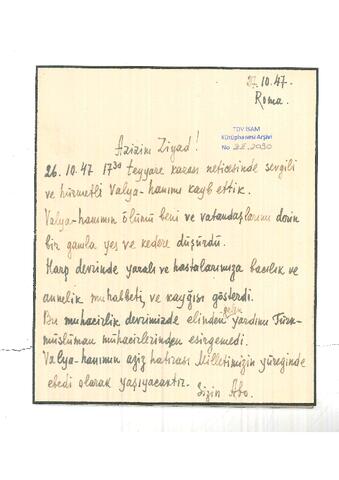 27.10.47.
Roma.
TDV İSAM
Kütüphanesi Arşivi
No 2E.2030
Azizim Ziyad!
26.10.47 17³⁰ teyyare kazası neticesinde sevgili
ve hürmetli Valya-hanımı kayb ettik.
Valya-hanımın ölümü beni ve vatandaşlarımı derin
bir gamla yes ve kedere düşürdü.
Harp devrinde yaralı ve hastalarımıza bacılık ve
annelik muhabbeti ve kayğısı gösterdi.
Bu muhacirlik devrimizde elinden gelen yardımı Türk-
müslüman mühacirlerinden esirgemedi.
Valya-hanımın aziz hatirası Milletimizin yüreğinde
ebedi olarak yaşıyacaktır.
Sizin Abo.